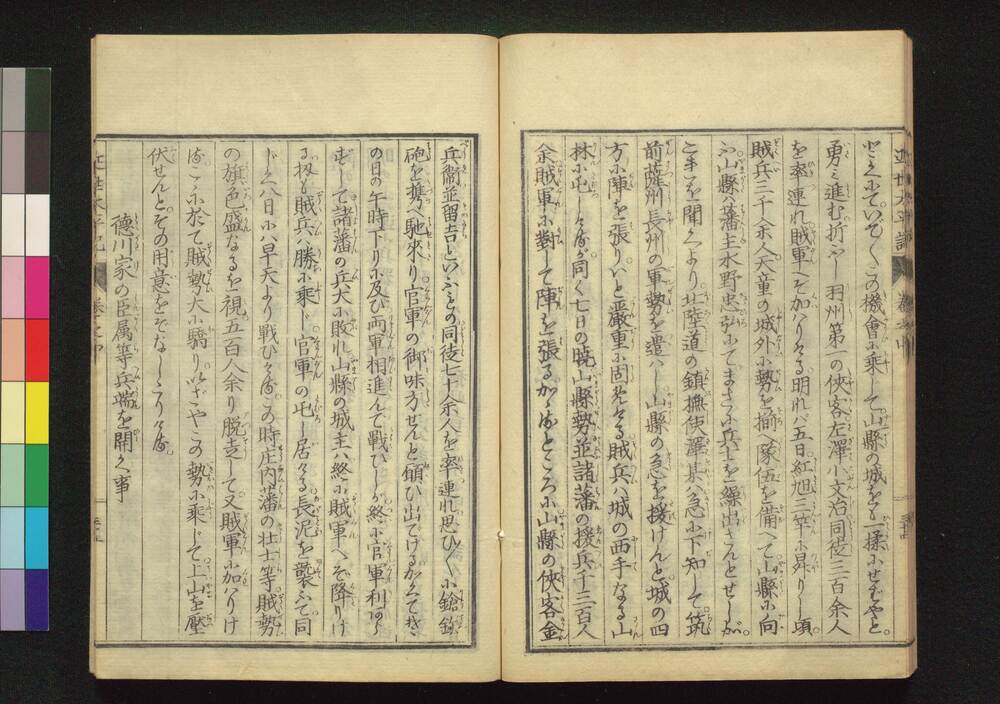 勇み進む折ふし羽州第一の侠客左澤小文治同徒三百余人
を率連れ賊軍へぞ加ハりける明れバ五日紅旭三竿に昇りし頃
賊兵三千余人天童の城外に勢を揃へ隊伍を備へて山縣に向
ふ山縣ハ藩主水野忠弘にてまさに兵士を繰出さんとせしが
こ事を聞くより北陸道の鎮撫使澤某ハ急に下知して筑
前薩州長州の軍勢を遣ハし山縣の急を援けんと城の四
方に陣を張りいと厳重に固めける賊兵ハ城の西手なる山
林に屯しけるが同く七日の暁山縣勢並諸藩の援兵千三百人
余賊軍に對して陣を張るがゝるところに山縣の侠客金
兵衞並留吉といふもの同徒七十余人を率連れ思ひ〳〵に鎗鉄
砲を携へ馳来り官軍の御味方せんと願ひ出でけるかくて其
の日の午時下りに及び両軍相進んで戦ひしが終に官軍利あら
ずして諸藩の兵大に敗れ山縣の城主ハ終に賊軍へぞ降りけ
る扨も賊兵ハ勝に乗じ官軍の屯し居ける長泥を襲ふて同
じく八日にハ早天より戦ひける此時庄内藩の壮士等賊勢
の旗色盛なるを視五百人余り脱走して又賊軍に加ハりけ
るこゝに於て賊勢大に驕りいざやこの勢に乗じて上山を壓
伏せんとその用意をぞなしゝりける
德川家の臣属等兵端を開く事